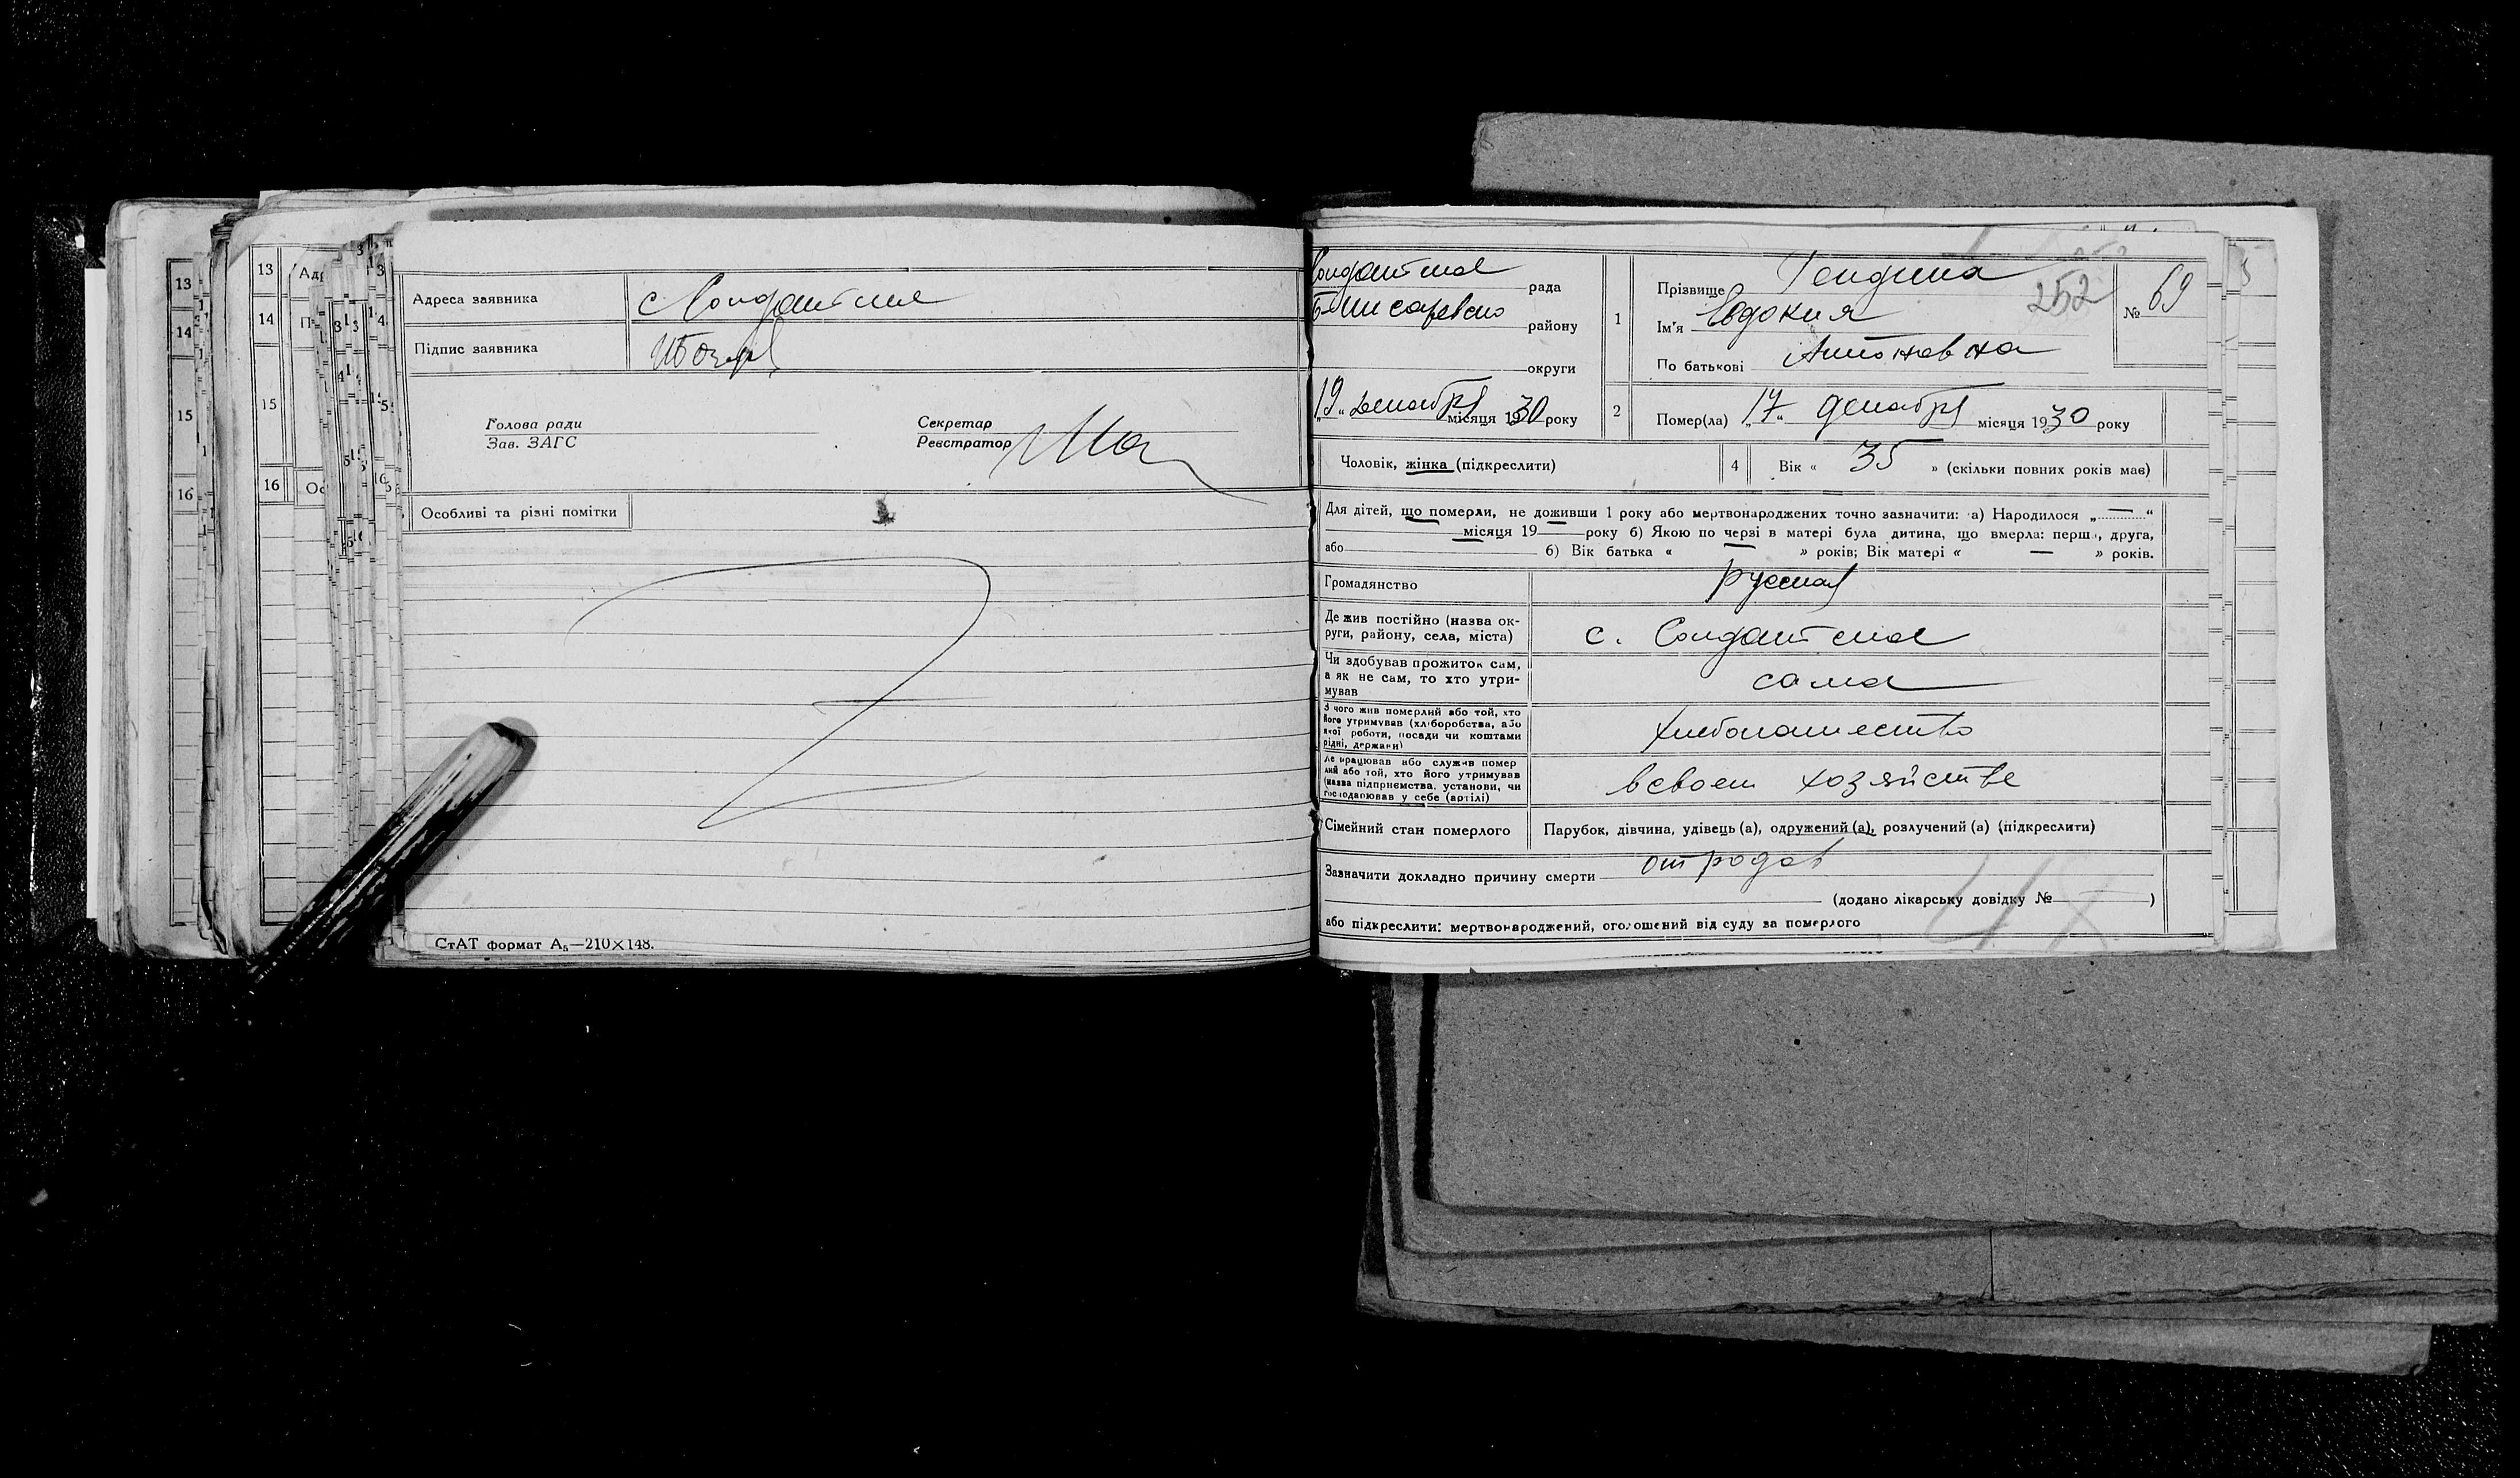 13
14
15
16
13
14
15
16
Адреса заявника с Солдатское
Підпис заявника
Голова ради
Зав. ЗАГС
Секретар
Реєстратор
Особливі та різні помітки
СтАТ формат А₅—210×148.
Солдатская рада
В-Писаревско району
округи
„19“ Декабря місяця 1930 року
1
Прізвище
Ім'я Евдокия
По батькові Антоновна
252
№ 69
2
Помер(ла) „17“ декабря місяця 1930 року
Чоловік, жінка (підкреслити)
4
Вік « 35 » (скільки повних років мав)
Для дітей, що померли, не доживши 1 року або мертвонароджених точно зазначити: а) Народилося „ — “
— місяця 19 — року б) Якою по черзі в матері була дитина, що вмерла: перша, друга,
або — б) Вік батька « — » років; Вік матері « — » років.
Громадянство русская
Де жив постійно (назва ок-
руги, району, села, міста) с. Солдатское
Чи здобував прожиток сам,
а як не сам, то хто утри-
мував сама
З чого жив померлий або той, хто
його утримував (хліборобства, або
якої роботи, посади чи коштами
рідні, держави) хлебопашество
Де працював або служив помер
лий або той, хто його утримував
(назва підприємства, установи, чи
господарював у себе (артілі) в своем хозяйстве
Сімейний стан померлого Парубок, дівчина, удівець (а), одружений (а), розлучений (а) (підкреслити)
Зазначити докладно причину смерти от родов
(додано лікарську довідку № )
або підкреслити: мертвонароджений, оголошений від суду за померлого